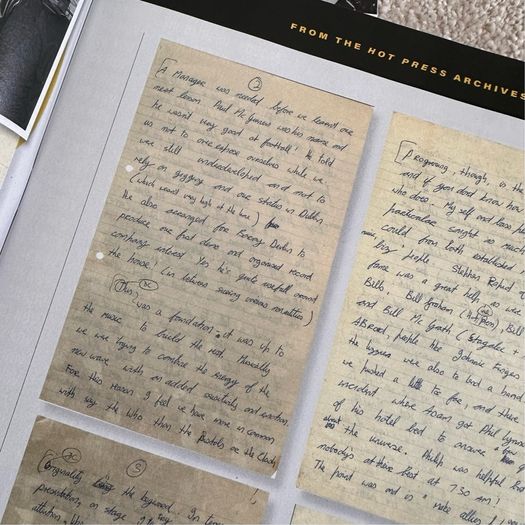 FROM THE HOT PRESS ARCHIVES
②
[A Manager was needed before we learnt our
next lesson. Paul Mc Guinness was his name and
he wasn't very good at football! He told
us not to over expose ourselves while we
were still underdeveloped and not to
rely on gigging and our status in Dublin
(which wasn't very high at the time)
He also arranged for Barry Devlin to
produce our first demo and organised record
company interest. Yes he's quite usefull around
the house! (in between seeing various mentalities)
[This was a foundation, it was up to
the music to build the rest. Musically
we were trying to combine the energy of the
new wave with an added sensitivity and emotion.
For this reason I feel we have more in common
with say the Who than the Pistols or the Clash
[Programing, though, is th
and if you dont know how
who does. My self and
particular sought as much
could from both established
big' people. Stephen
force was a great help, as were
Bills', Bill Graham (Hot Press), Bill
and Bill Mc Grath (Stagalee +
Abroad, people like Johnnie Fingers
the biggies were also to lend a hand
we hushed a little too far, and there
incident where Adam got Phil Lynott
of his hotel bed to answer a few
about the universe. Philip was helpful but
nobodys at there best at 7.30 am!
The point was and is "make allies
⑤
[Originality the keyword. In
presentation, on stage
attention, this